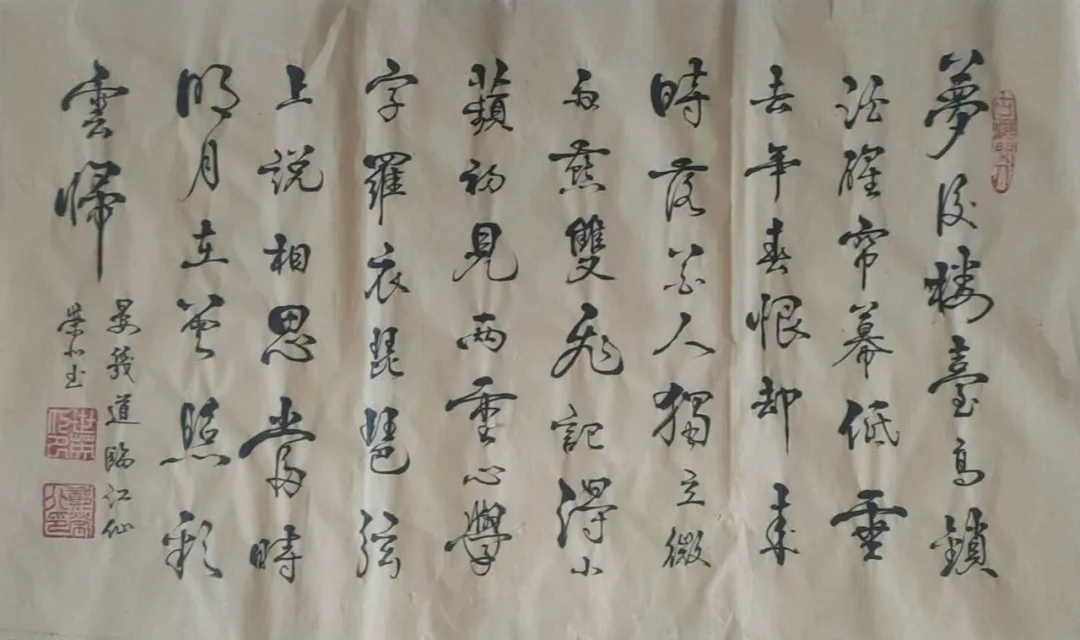 夢後楼臺高鎖
酒醒帘幕低垂
去年春恨却來
時落花人獨立微
雨燕雙飛記得小
蘋初見兩重心學
字羅衣琵琶弦
上説相思當時
明月在曾照彩
雲歸
晏幾道臨江仙